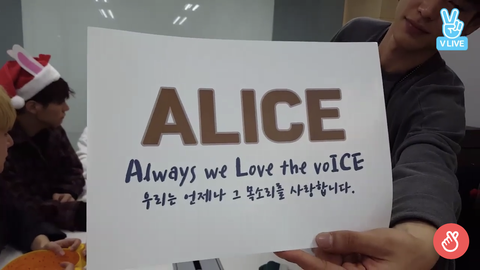 V LIVE
ALICE
Always we Love the voICE
우리는 언제나 그 목소리를 사랑합니다.